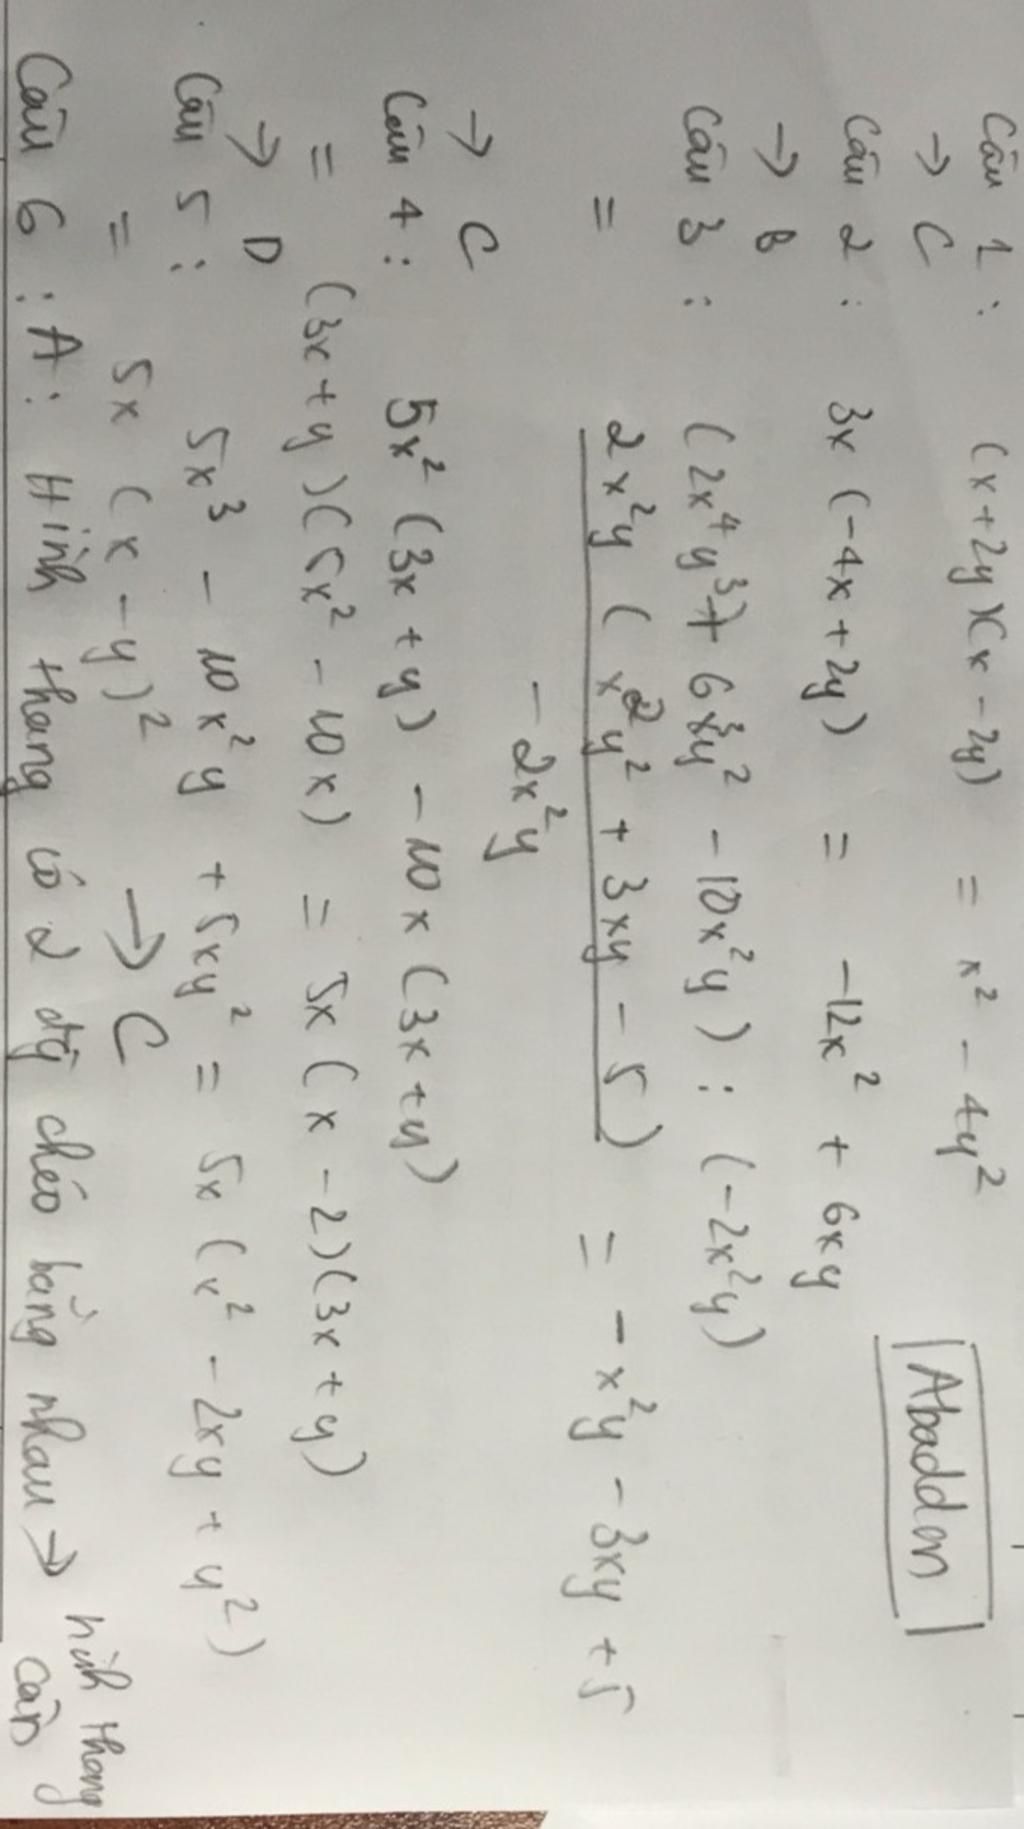 Câu 1 : (x+2y)(x-2y) = x² - 4y²
→ C
Câu 2 : 3x (-4x+2y) = -12x² + 6xy
→ B
Abaddon
Câu 3 : (2x⁴y³ + 6x³y² - 10x²y) : (-2x²y)
= 2x²y ( x²y² + 3xy - 5 ) = - x²y - 3xy + 5
- 2x²y
→ C
Câu 4 : 5x² (3x + y) - 10x (3x+y)
= (3x+y)(5x² - 10x) = 5x (x - 2)(3x + y)
→ D
Câu 5 : 5x³ - 10x²y + 5xy² = 5x (x² - 2xy + y²)
= 5x (x - y)² → C
Câu 6 : A : Hình thang có 2 đg chéo bằng nhau → hình thang
cân